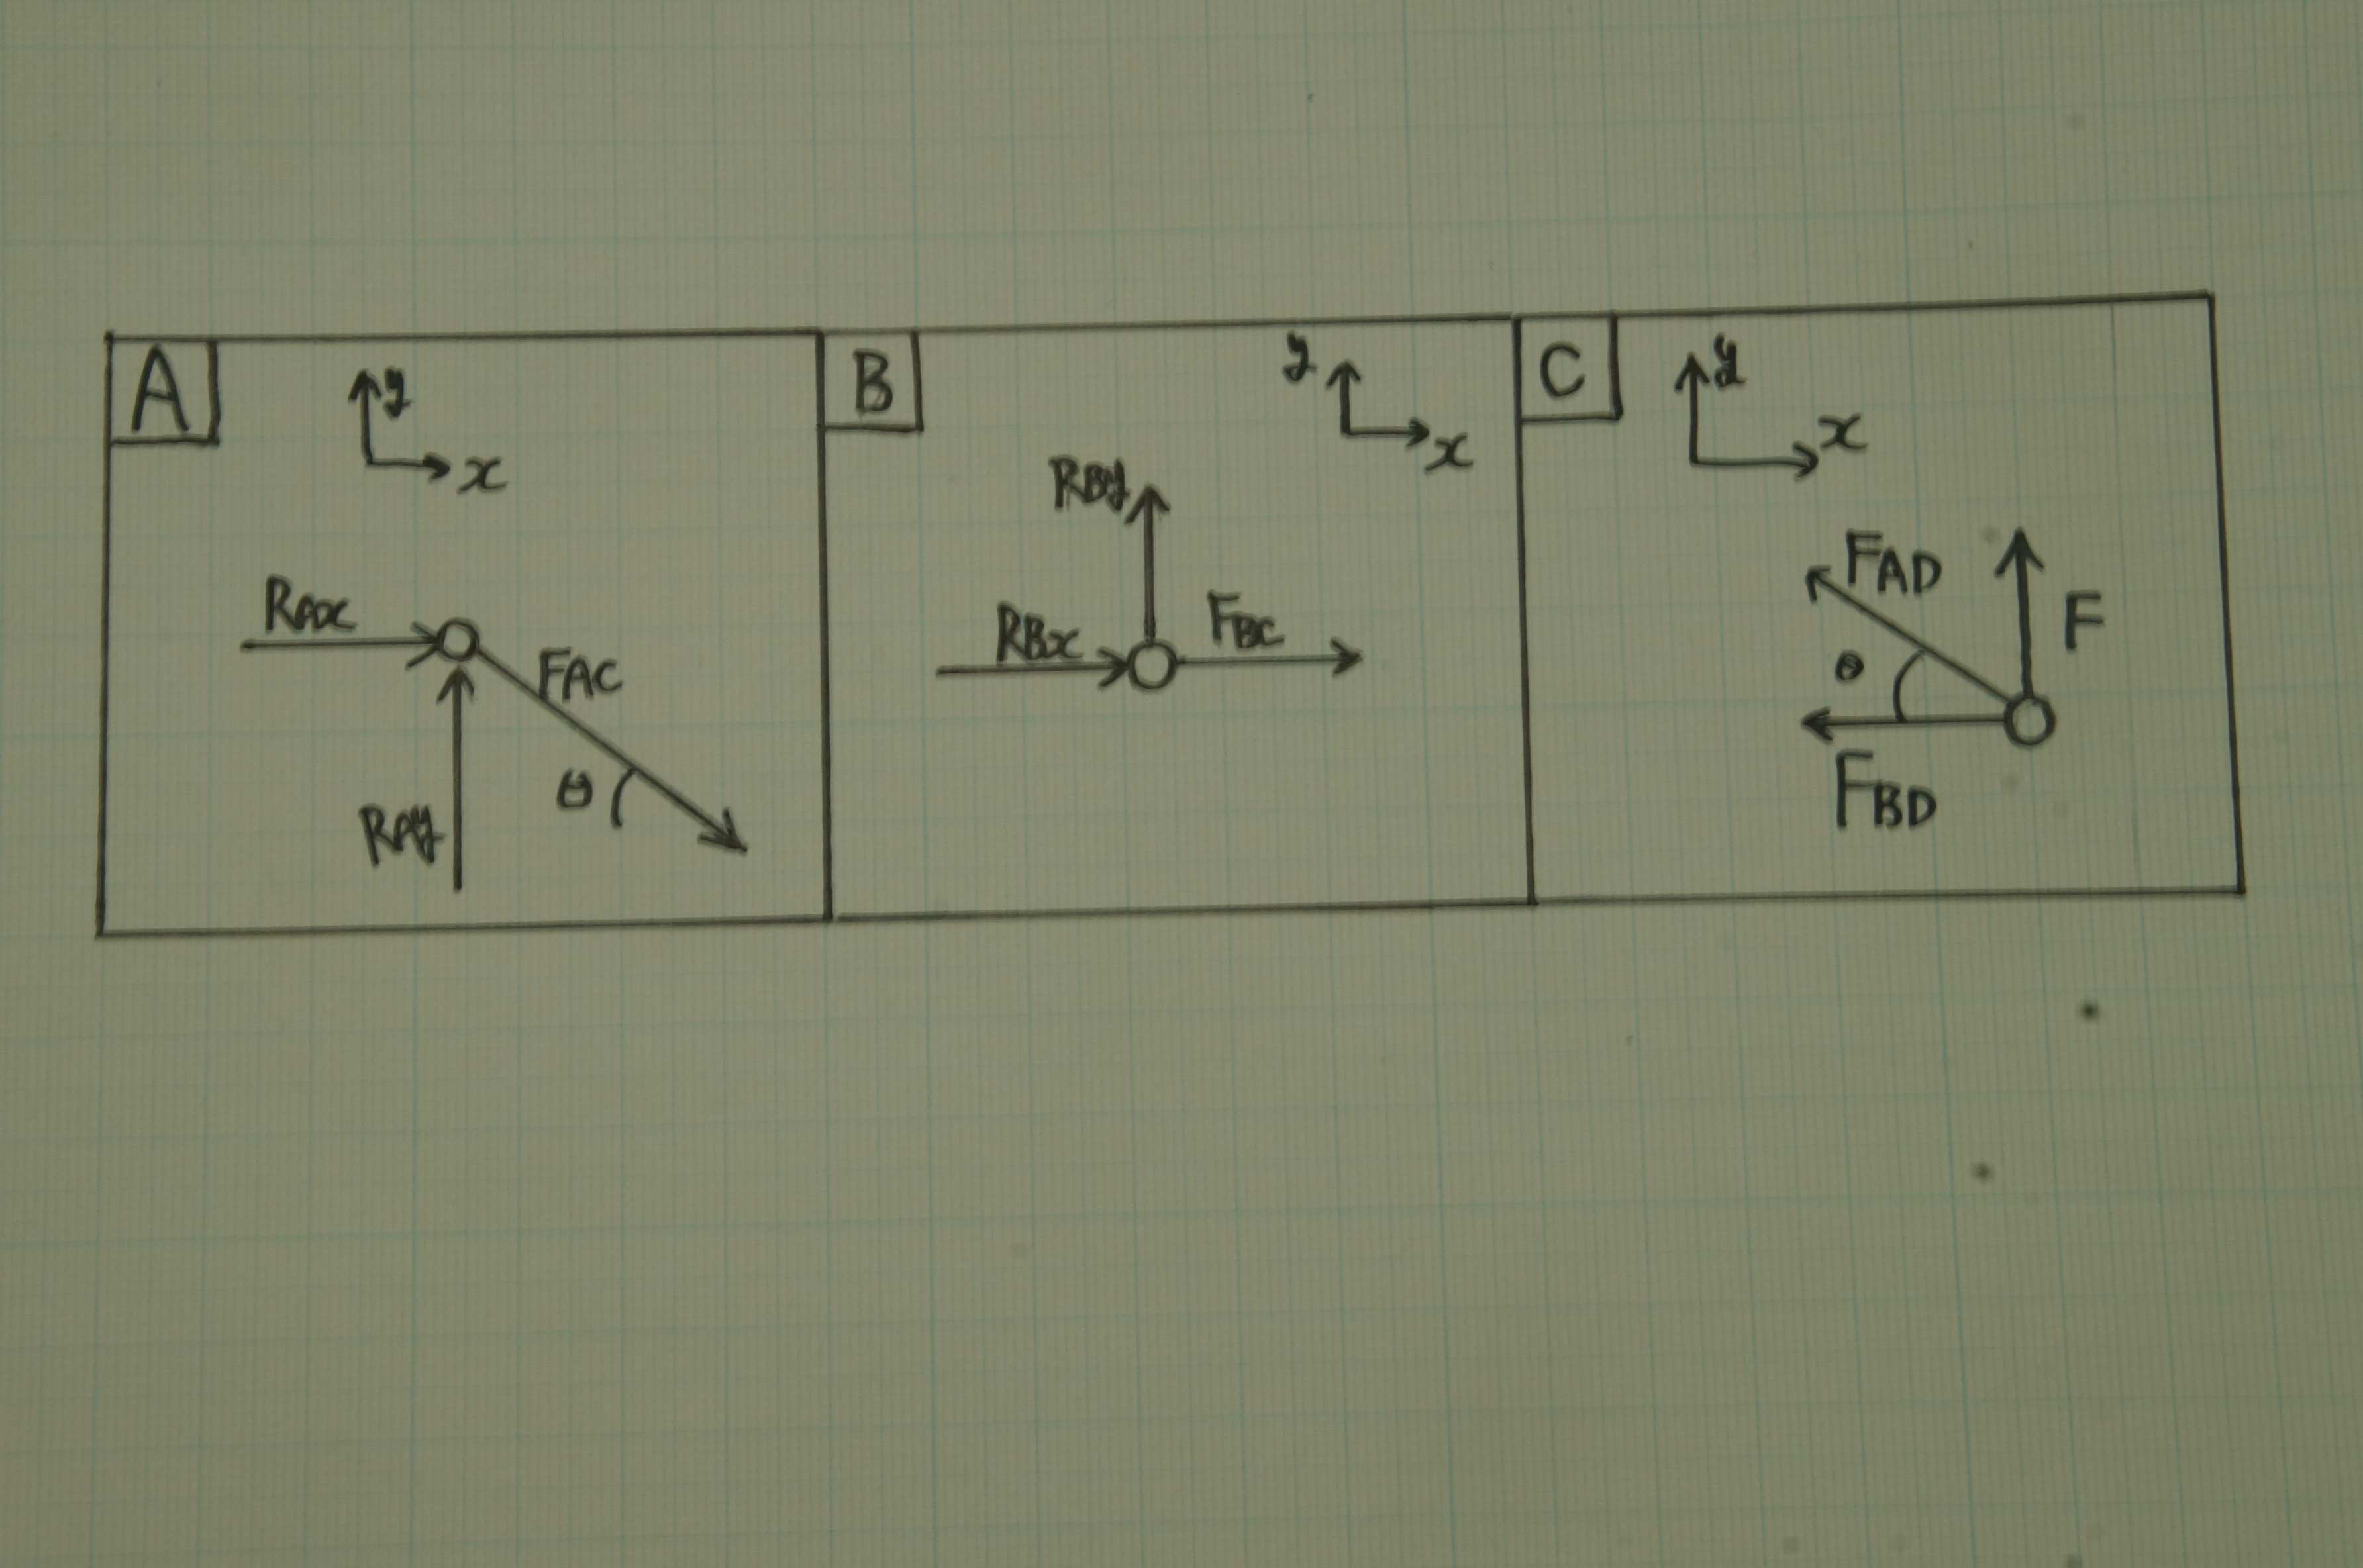 A
y
x
RAx
FAC
θ
RAy
B
y
x
RBy
RBx
FBC
C
y
x
FAD
F
θ
FBD